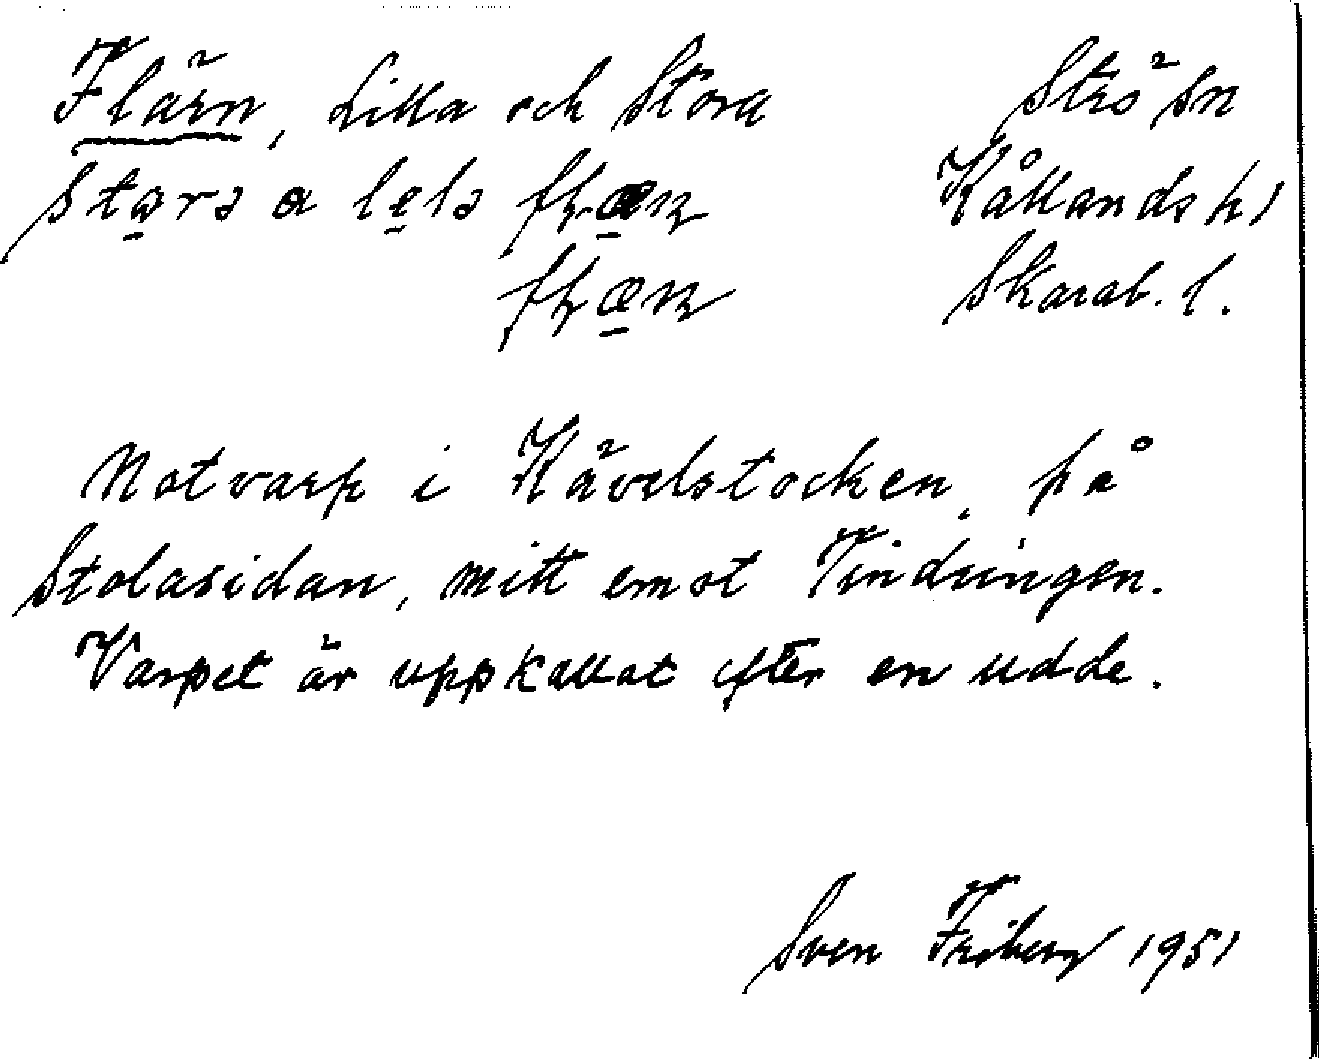 Flärn, Lilla och Stora
Strö sn
Kållands hd
Skarab. l.
Notvarp i Kävelstocken, på
Stolasidan, mitt emot Tindringen.
Varpet är uppkallat efter en udde.
Sven Friberg 1951